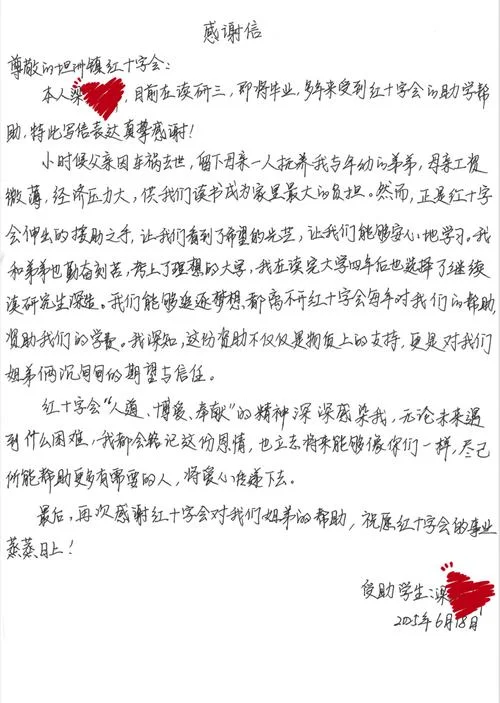 感谢信
尊敬的坦洲镇红十字会:
本人梁,目前在读研三,即将毕业,多年来受到红十字会的助学帮
助,特此写信表达真挚感谢!
小时候父亲因车祸去世,留下母亲一人抚养我与年幼的弟弟,母亲工资
微薄,经济压力大,供我们读书成为家里最大的负担。然而,正是红十字
会伸出的援助之手,让我们看到了希望的光芒,让我们能够安心地学习。我
和弟弟也勤奋刻苦,考上了理想的大学,我在读完大学四年后也选择了继续
读研究生深造。我们能够追逐梦想都离不开红十字会每年对我们的帮助,
资助我们的学费。我深知,这份资助不仅仅是物质上的支持,更是对我们
姐弟俩沉甸甸的期望与信任。
红十字会“人道、博爱、奉献”的精神深深感染我,无论未来遇
到什么困难,我都会铭记这份恩情,也立志将来能够像你们一样,尽己
所能帮助更多有需要的人,将爱心传递下去。
最后,再次感谢红十字会对我们姐弟的帮助,祝愿红十字会的事业
蒸蒸日上!
受助学生:梁
2025年6月18日